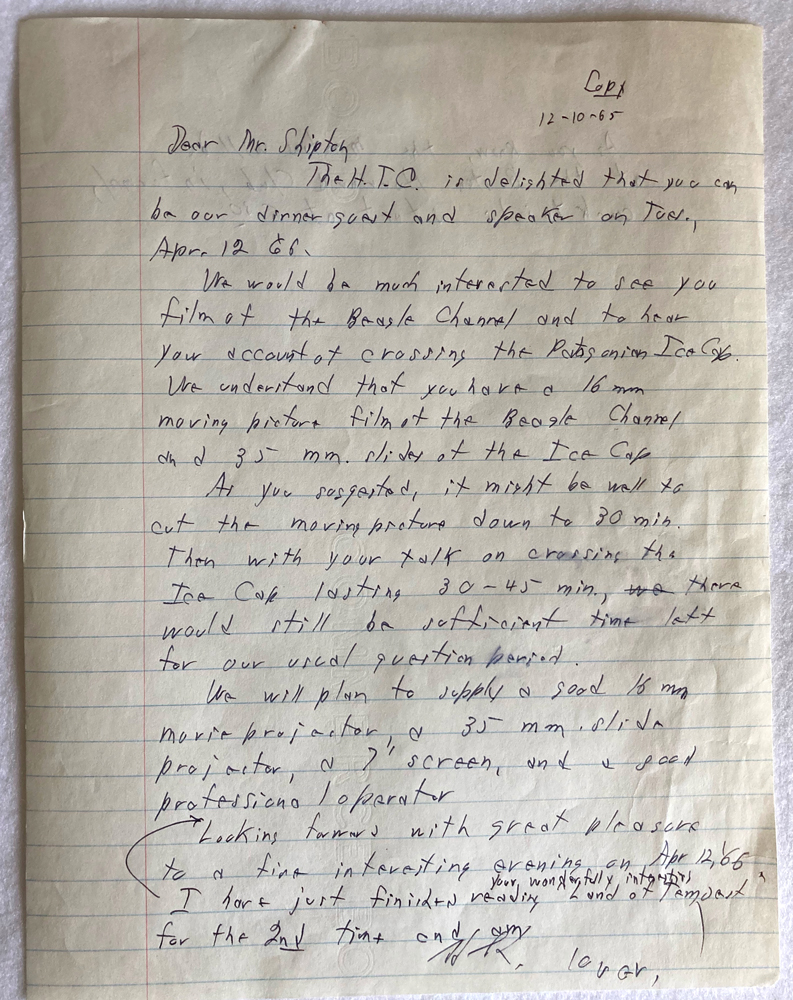 Copy
12-10-65
Dear Mr. Shipton
The H.T.C. is delighted that you can
be our dinner guest and speaker on Tues.,
Apr. 12 66.
We would be much interested to see you
film of the Beagle Channel and to hear
your account of crossing the Patagonian Ice Cap.
We understand that you have a 16 mm
moving picture film of the Beagle Channel
and 35 mm. slides of the Ice Cap
As you suggested, it might be well to
cut the moving picture down to 30 min.
Then with your talk on crossing the
Ice Cap lasting 30-45 min., we there
would still be sufficient time left
for our usual question period.
We will plan to supply a good 16 mm
movie projector, a 35 mm. slide
projector, a 7" screen, and a good
professional operator
Looking forward with great pleasure
to a fine interesting evening on Apr 12, '66
your wonderfully interesting
I have just finished reading Land of Tempest
for the 2nd time and am
over,